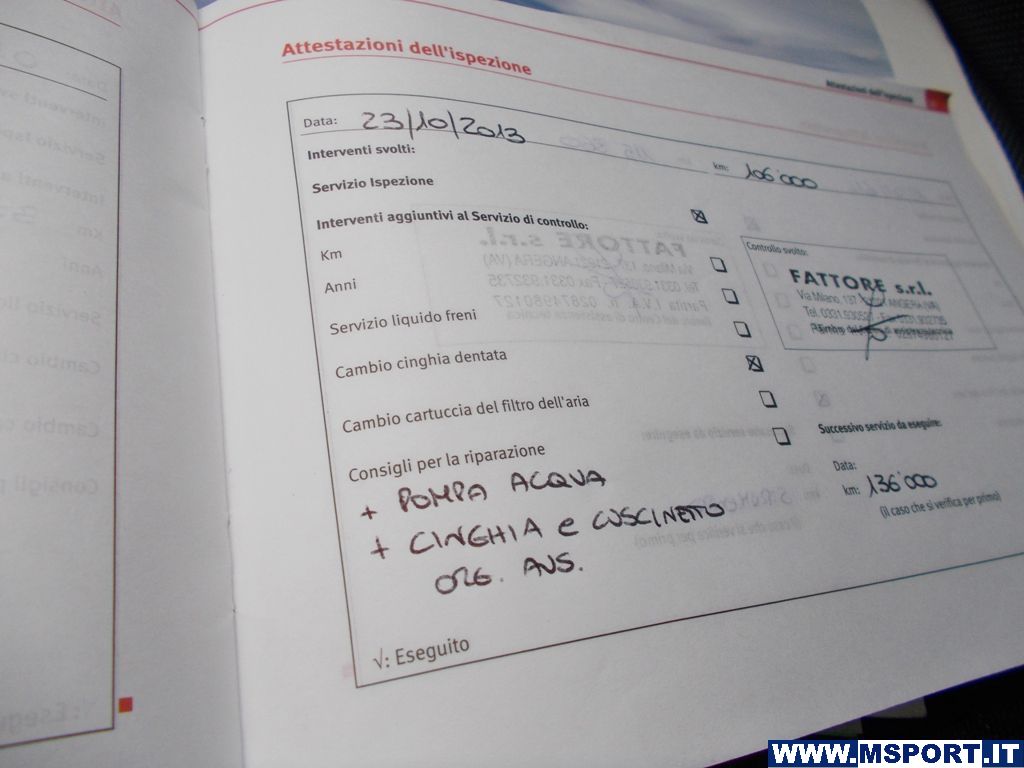 Attestazioni dell'ispezione
Attestazioni dell'ispezione
Data: 23/10/2013
km: 106'000
Interventi svolti:
Servizio Ispezione
Interventi aggiuntivi al Servizio di controllo:
Km
Anni
Servizio liquido freni
Cambio cinghia dentata
Cambio cartuccia del filtro dell'aria
Consigli per la riparazione
+ POMPA ACQUA
+ CINGHIA e CUSCINETTO
ORG. AUS.
√: Eseguito
Controllo svolto:
FATTORE s.r.l.
Via Milano, 137 - 21021 ANGERA (VA)
Tel. 0331.930527 - Fax 0331.932735
02874980127
Successivo servizio da eseguire:
Data:
km: 136'000
(il caso che si verifica per primo)
WWW.MSPORT.IT